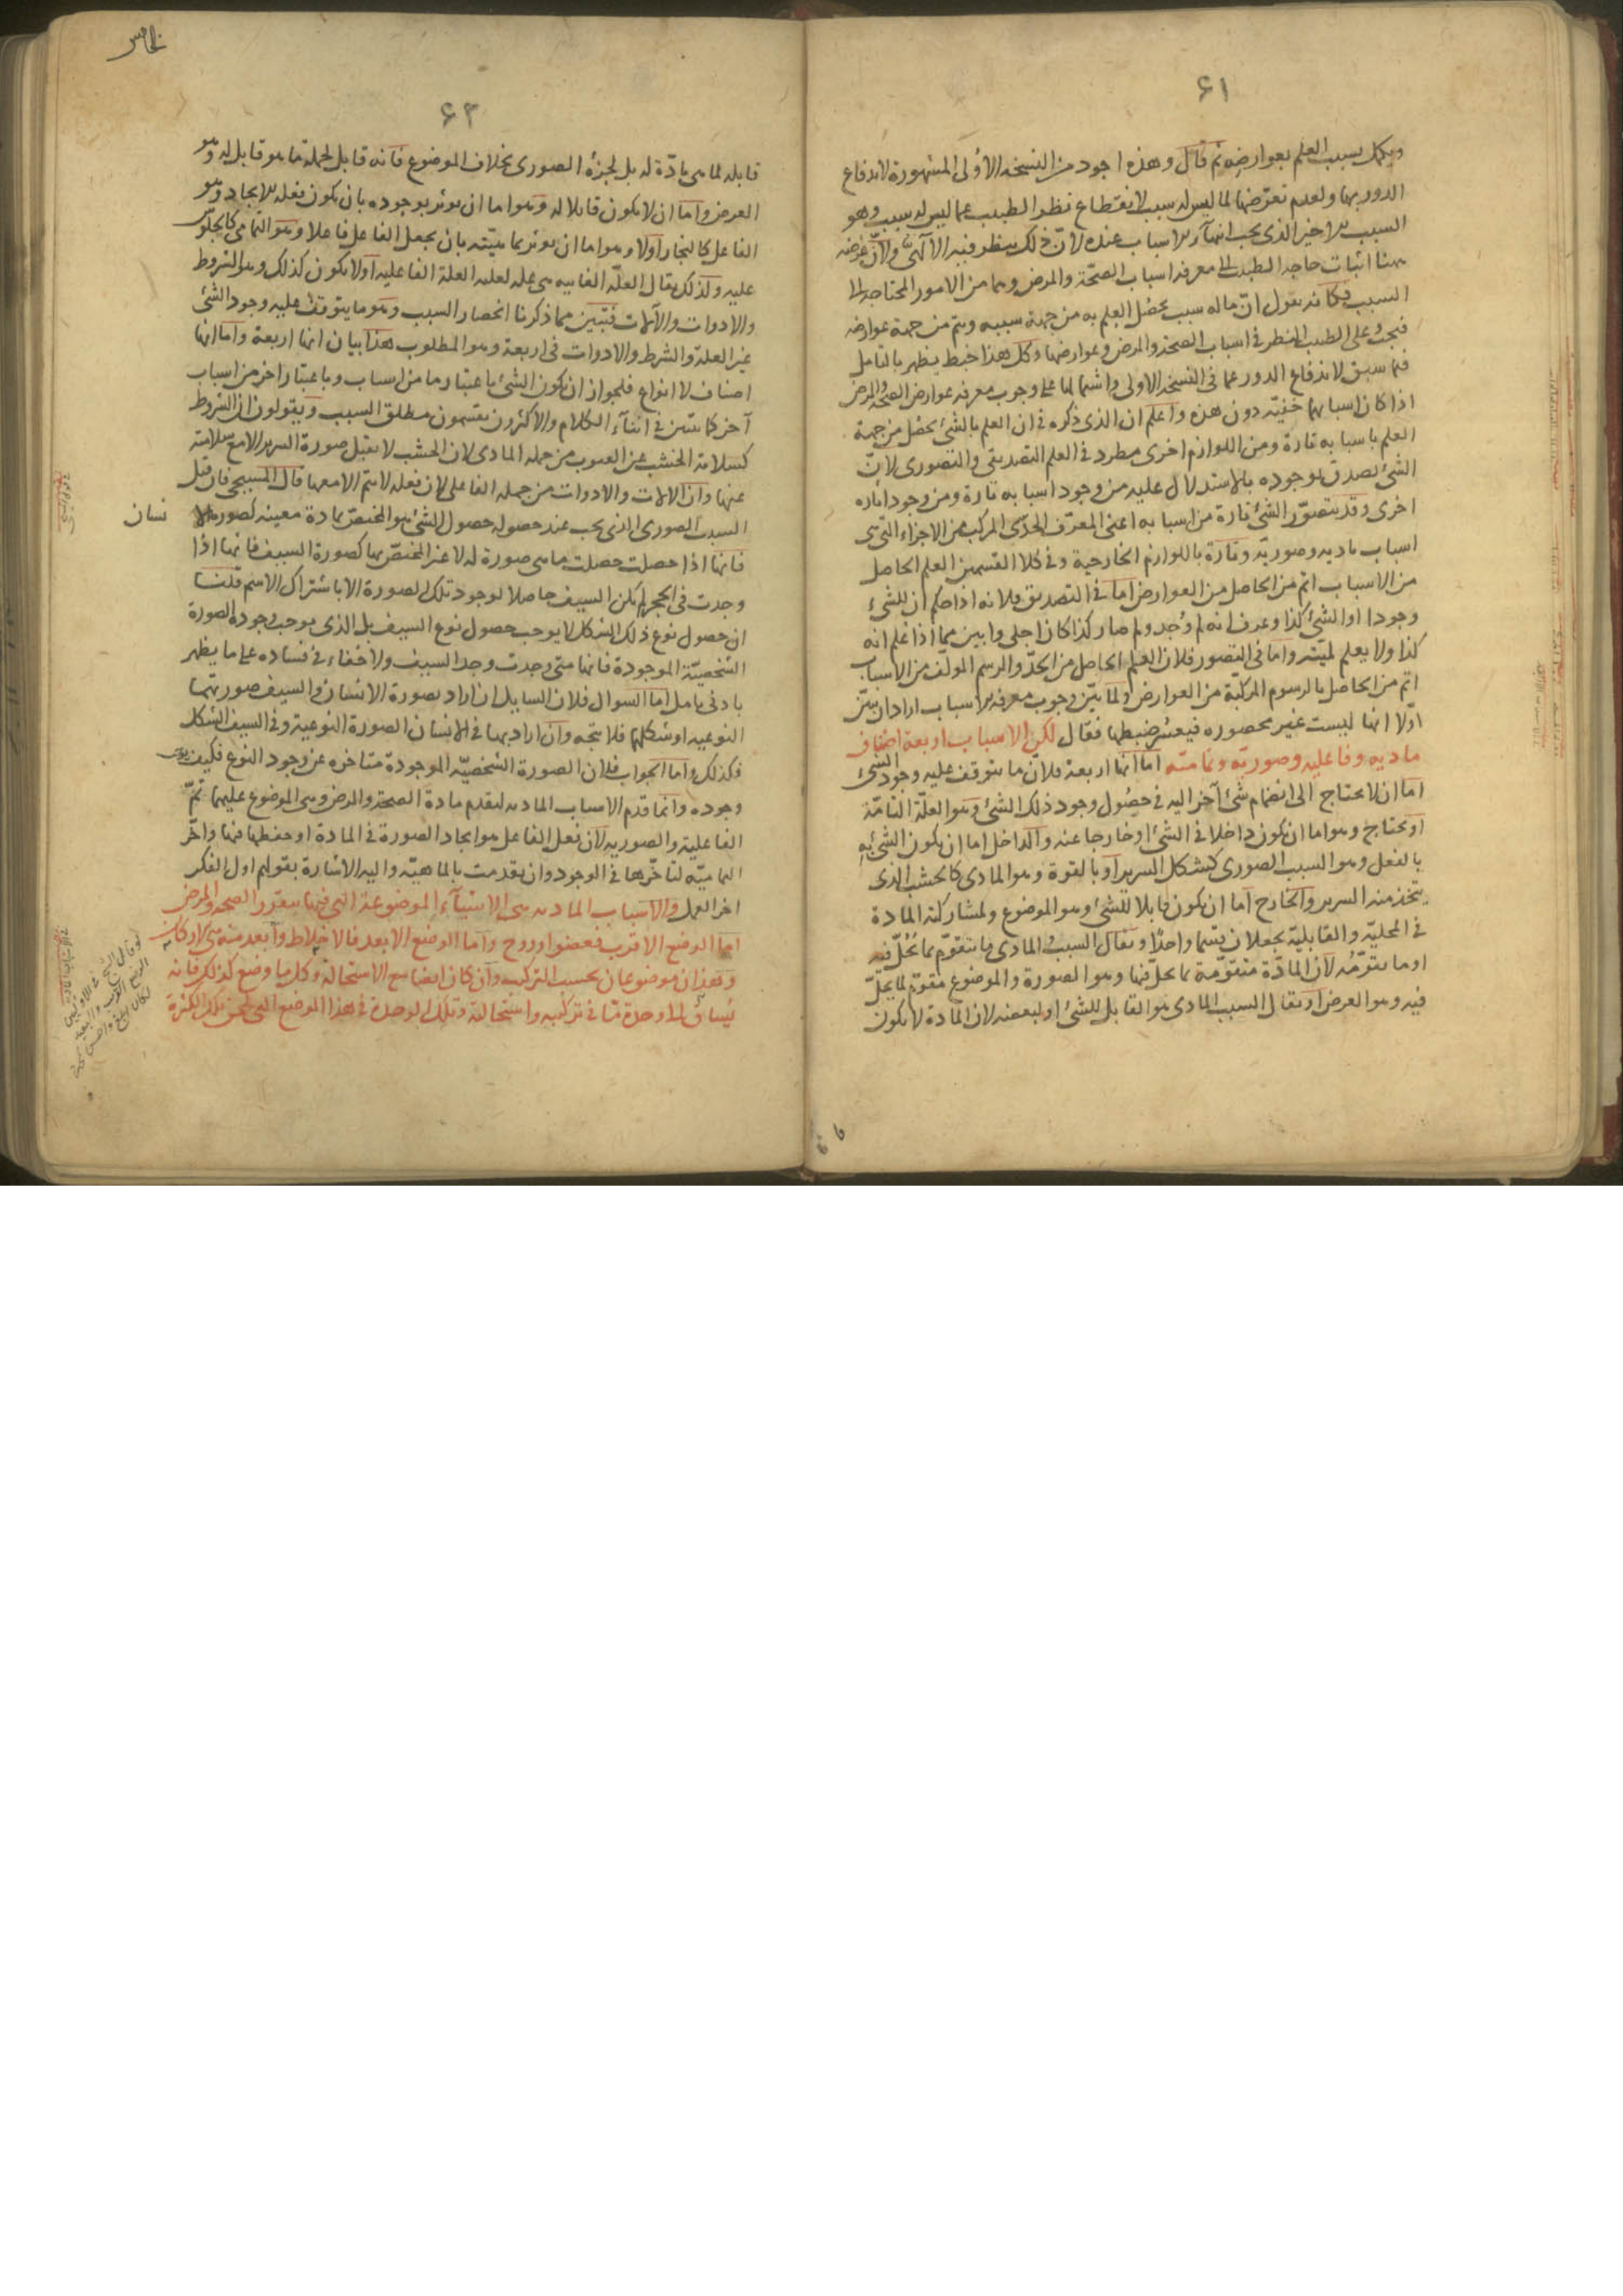 ٦١
ويكمل بسبب العلم بعوارضه ثم قال وهذه اجود من النسخه الاولى المشهورة لاندفاع
الدور بها ولعدم تعرضها لما ليس له سبب لانقطاع نظر الطبيب عما ليس له سبب وهو
السبب الاخير الذى يجب انتهآء الاسباب عنده لان ذلك ينظر فيه الآلهى ولان غرضه
ههنا اثبات حاجه الطبيب الى معرفه اسباب الصحة والمرض وهما من الامور المحتاجه الى
السبب فكانه يقول ان ماله سبب يحصل العلم به من جهة سببه ويتم من جهة عوارضه
فيجب على الطبيب النظر فى اسباب الصحة والمرض وعوارضها وكل هذا خبط يظهر بالتامل
فيما سبق لاندفاع الدور عما فى النسخه الاولى واشتمالها على وجوب معرفه عوارض الصحة والمرض
اذا كان اسبابهما خفيه دون هذه واعلم ان الذى ذكره فى ان العلم بالشئ يحصل من جهة
العلم باسبابه تارة ومن اللوازم اخرى مطرد فى العلم التصديقى والتصورى لان
الشئ يصدق بوجوده بالاستدلال عليه من وجود اسبابه تارة ومن وجود اثاره
اخرى وقد يتصور الشئ تارة من اسبابه اعنى المعرف الحدى المركب من الاجزاء التى هى
اسباب ماديه وصوريه وتارة باللوازم الخارجية وفى كلا القسمين العلم الحاصل
من الاسباب اتم من الحاصل من العوارض اما فى التصديق فلانه اذا حكم ان للشئ
وجودا او الشئ كذا وعرف انه لم وجد ولم صار كذا كان اجلى وابين مما اذا علم انه
كذا ولا يعلم لميته واما فى التصور فلان العلم الحاصل من الحد والرسم المولف من الاسباب
اتم من الحاصل بالرسوم المركبة من العوارض ولما بين وجوب معرفه الاسباب اراد ان يبين
اولا انها ليست غير محصوره فيعسر ضبطها فقال لكن الاسباب اربعة اصناف
ماديه وفاعليه وصورية وتماميه اما انها اربعة فلان ما يتوقف عليه وجود الشئ
اما ان لا يحتاج الى انضمام شئ آخر اليه فى حصول وجود ذلك الشئ وهو العلة التامة
او يحتاج وهو اما ان يكون داخلا فى الشئ او خارجا عنه والداخل اما ان يكون الشئ به
بالفعل وهو السبب الصورى كشكل السرير او بالقوة وهو المادى كالخشب الذى
يتخذ منه السرير والخارج اما ان يكون قابلا للشئ وهو الموضوع ولمشاركته المادة
فى المحلية والقابلية يجعلان قسما واحدا ويقال السبب المادى ما يتقوم بما يحل فيه
او ما يتقومه لان المادة متقومة بما يحل فيها وهو الصورة والموضوع مقوم لما يحل
فيه وهو العرض او يقال السبب المادى هو القابل للشئ او لبعضه لان المادة لا يكون
٦٢
قابله لما هى مادة له بل لجزئه الصورى بخلاف الموضوع فانه قابل لجملة ما هو قابل له وهو
العرض واما ان لا يكون قابلا له وهو اما ان يوثر بوجوده بان يكون فعله الايجاد وهو
الفاعل كالنجار او لا وهو اما ان يوثر بماهيته بان يجعل الفاعل فاعلا وهو التمامى كالجلوس
عليه ولذلك يقال العلة الغاييه هى عله لعليه العلة الفاعليه او لا يكون كذلك وهو الشروط
والادوات والآلات فتبين مما ذكرنا انحصار السبب وهو ما يتوقف عليه وجود الشئ
غير العلة والشرط والادوات فى اربعة وهو المطلوب هذا بيان انها اربعة واما انها
اصناف لا انواع فلجواز ان يكون الشئ باعتبار ما من اسباب وباعتبار اخر من اسباب
آخر كما يتبين فى اثنآء الكلام والاكثرون يقسمون مطلق السبب ويقولون ان الشروط
كسلامة الخشب عن العيوب من جمله المادى لان الخشب لا يقبل صورة السرير الا مع سلامته
عنها وان الالات والادوات من جمله الفاعلى لان فعله لا يتم الا معها قال المسيحى فان قيل
السبب الصورى الذى يجب عند حصوله حصول الشئ هو المختص بمادة معينه كصورة الا
نسان
فانها اذا حصلت حصلت ما هى صورة له لا غير المختص بها كصورة السيف فانها اذا
وجدت فى الحجر لم يكن السيف حاصلا لوجود تلك الصورة الا باشتراك الاسم قلنا
ان حصول نوع ذلك الشكل لا يوجب حصول نوع السيف بل الذى يوجب وجوده الصورة
الشخصية الموجودة فانها متى وجدت وجد السيف ولا خفاء فى فساده على ما يظهر
بادنى تامل اما السوال فلان السايل ان اراد بصورة الانسان والسيف صورتهما
النوعيه او شكلهما فلا تتجه وان اراد بها فى الانسان الصورة النوعية وفى السيف الشكل
فكذلك واما الجواب فلان الصورة الشخصية الموجودة متاخره عن وجود النوع فكيف يوجب
وجوده وانما قدم الاسباب الماديه لتقدم مادة الصحة والمرض وهى الموضوع عليهما ثم
الفاعلية والصوريه لان فعل الفاعل هو ايجاد الصورة فى المادة او حفظها فيها واخر
التمامية لتاخرها فى الوجود وان تقدمت بالماهية واليه الاشارة بقولهم اول الفكر
اخر العمل والاسباب الماديه هى الاشيآء الموضوعة التى فيها يتقرر الصحه والمرض
اما الموضع الاقرب فعضو او روح واما الوضع الابعد فالاخلاط وابعد منه هى الاركان
وهذان موضوعان بحسب التركيب وان كان ايضا مع الاستحالة وكل ما وضع كذلك فانه
يساق الى وحدة ما فى تركيبه واستحالته وتلك الوحدة فى هذا الموضع التى تلحق تلك الكثرة